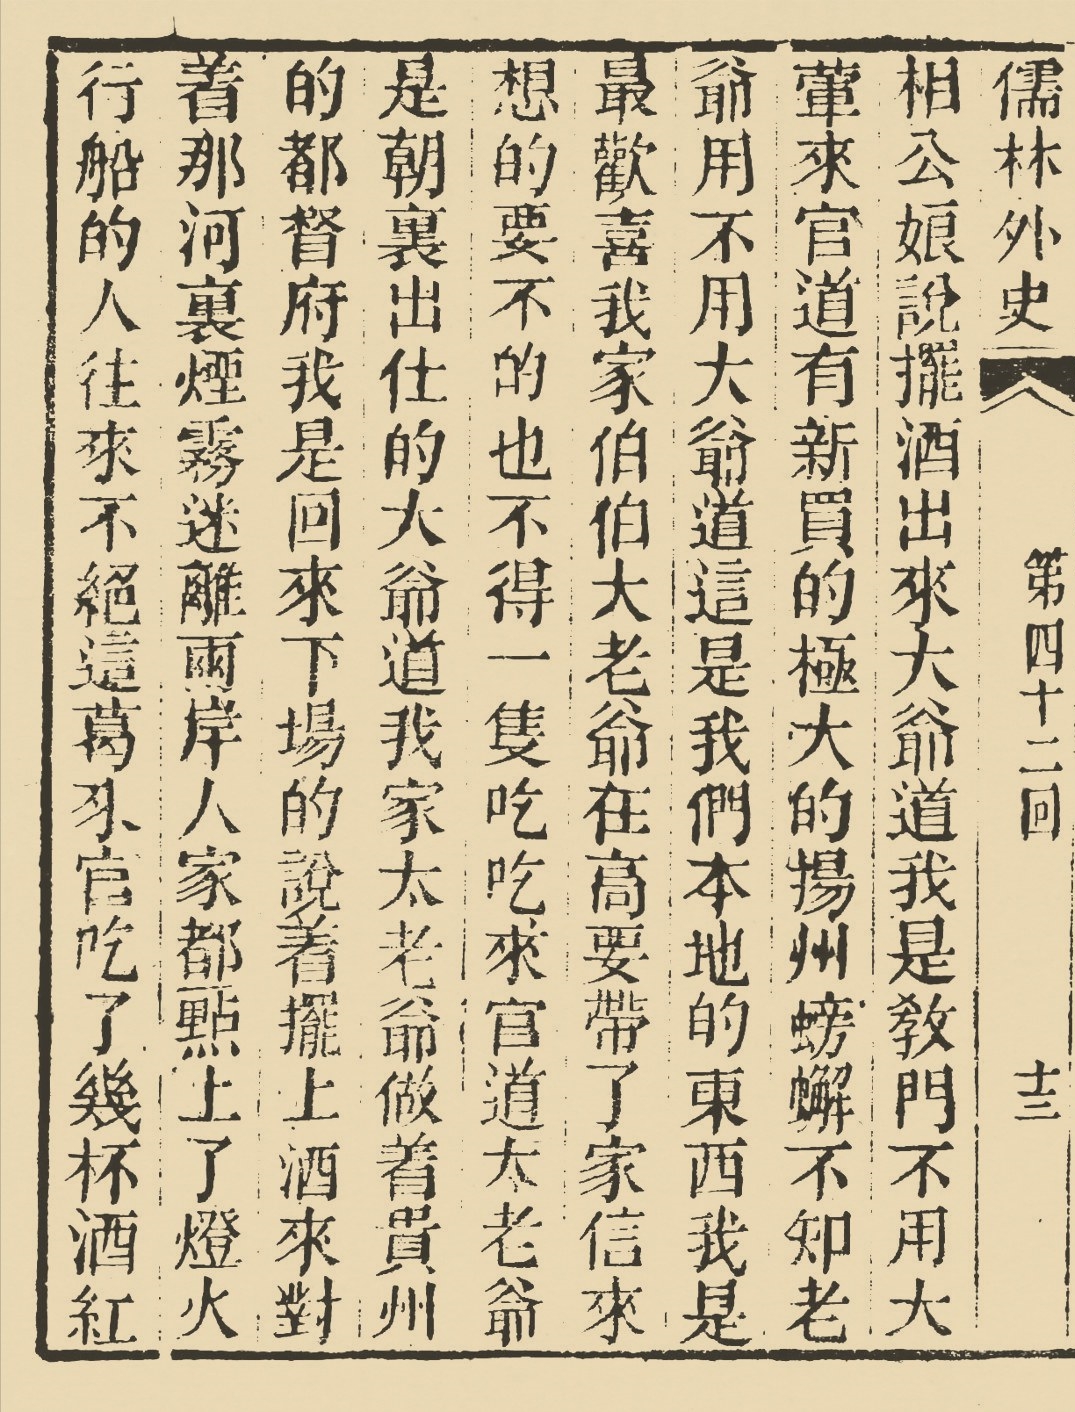 儒林外史
第四十二回
十三
相公娘說擺酒出來大爺道我是教門不用大
葷來官道有新買的極大的揚州螃蠏不知老
爺用不用大爺道這是我們本地的東西我是
最歡喜我家伯伯大老爺在高要帶了家信來
想的要不的也不得一隻吃吃來官道太老爺
是朝裏出仕的大爺道我家太老爺做着貴州
的都督府我是回來下場的說着擺上酒來對
着那河裏煙霧迷離兩岸人家都點上了燈火
行船的人往來不絕這葛來官吃了幾杯酒紅